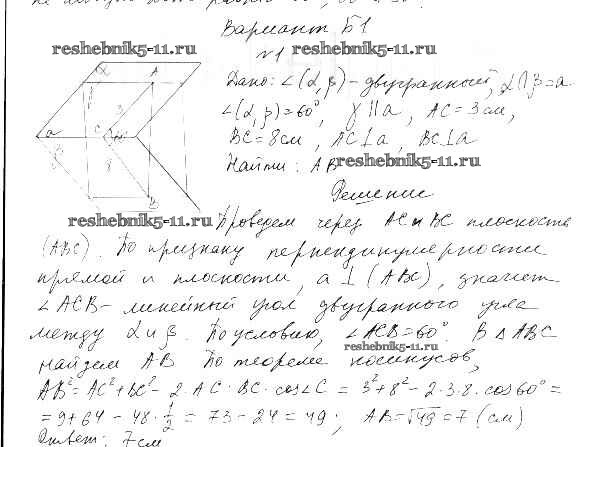 Вариант Б1
reshebnik5-11.ru
№1
Дано: ∠(α, β) – двугранный, α∩β=a
∠(α, β)=60°, γ || a, AC=3см,
BC=8см, AC⊥a, BC⊥a
Найти: AB
reshebnik5-11.ru
α
A
β
3
a
C
8
B
Решение
reshebnik5-11.ru
Проведем через AC и BC плоскость
(ABC). По признаку перпендикулярности
прямой и плоскости, a ⊥ (ABC), значит
∠ACB – линейный угол двугранного угла
между α и β. По условию, ∠ACB=60° В △ABC
reshebnik5-11.ru
найдем AB По теореме косинусов,
AB²=AC²+BC²–2·AC·BC·cos∠C = 3²+8²–2·3·8·cos60°=
=9+64–48·1/2=73–24=49; AB=√49=7 (см)
Ответ: 7см